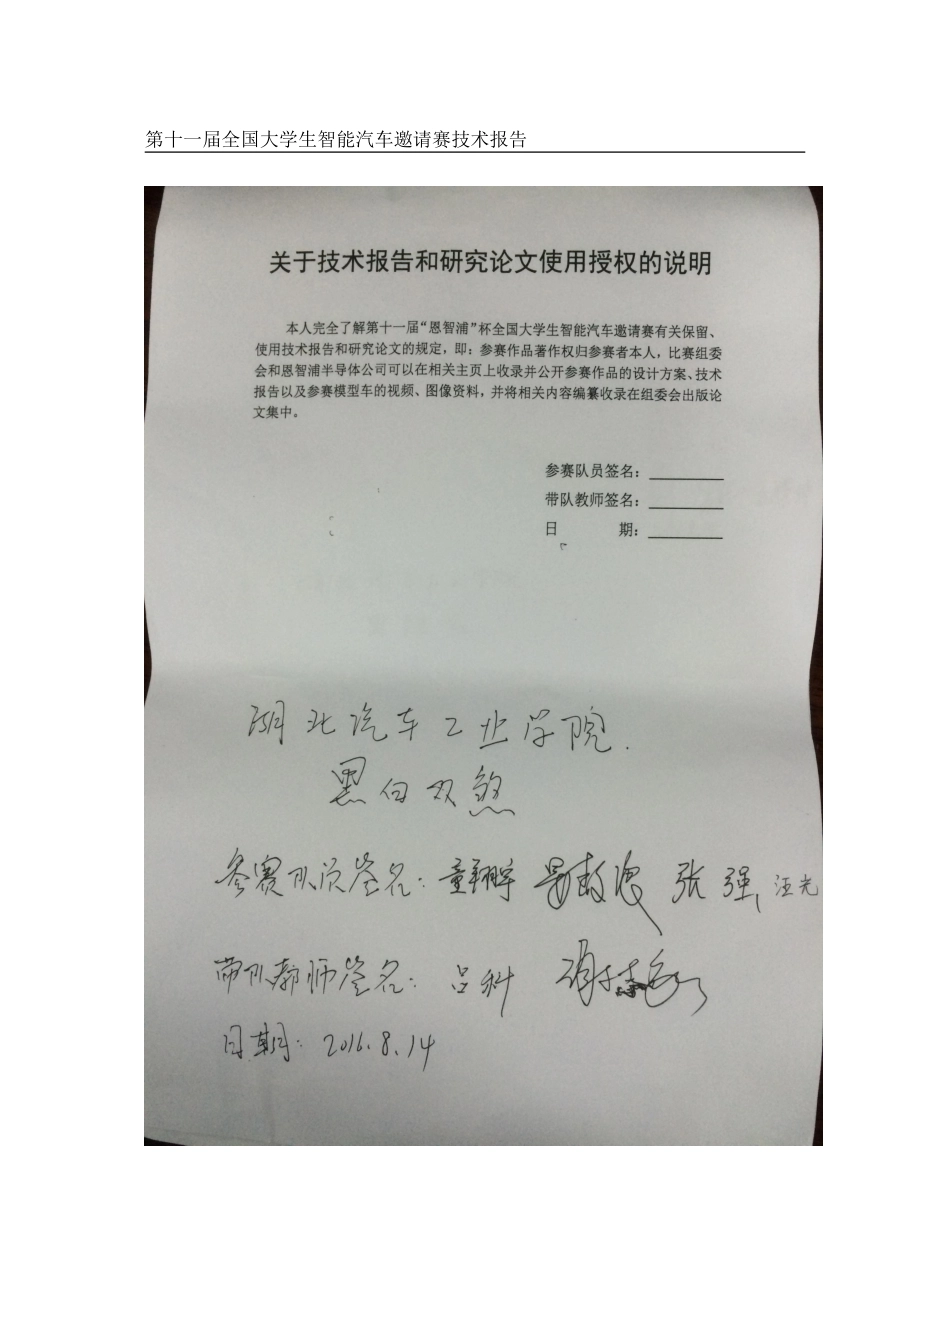 第十一届全国大学生智能汽车邀请赛技术报告
关于技术报告和研究论文使用授权的说明
本人完全了解第十一届“恩智浦”杯全国大学生智能汽车邀请赛有关保留、
使用技术报告和研究论文的规定，即：参赛作品著作权归参赛者本人，比赛组委
会和恩智浦半导体公司可以在相关主页上收录并公开参赛作品的设计方案、技术
报告以及参赛模型车的视频、图像资料，并将相关内容编纂收录在组委会出版论
文集中。
参赛队员签名：
带队教师签名：
日 期：
湖北汽车工业学院.
黑白双煞
参赛队员签名：童翔宇 张强 汪光
带队教师签名：吕科
日期：2016.8.14